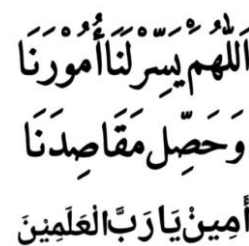 اَللّٰهُمَّ يَسِّرْ لَنَا أُمُوْرَنَا
وَحَصِّلْ مَقَاصِدَنَا
أٰمِيْنْ يَا رَبَّ الْعَلَمِيْنَ